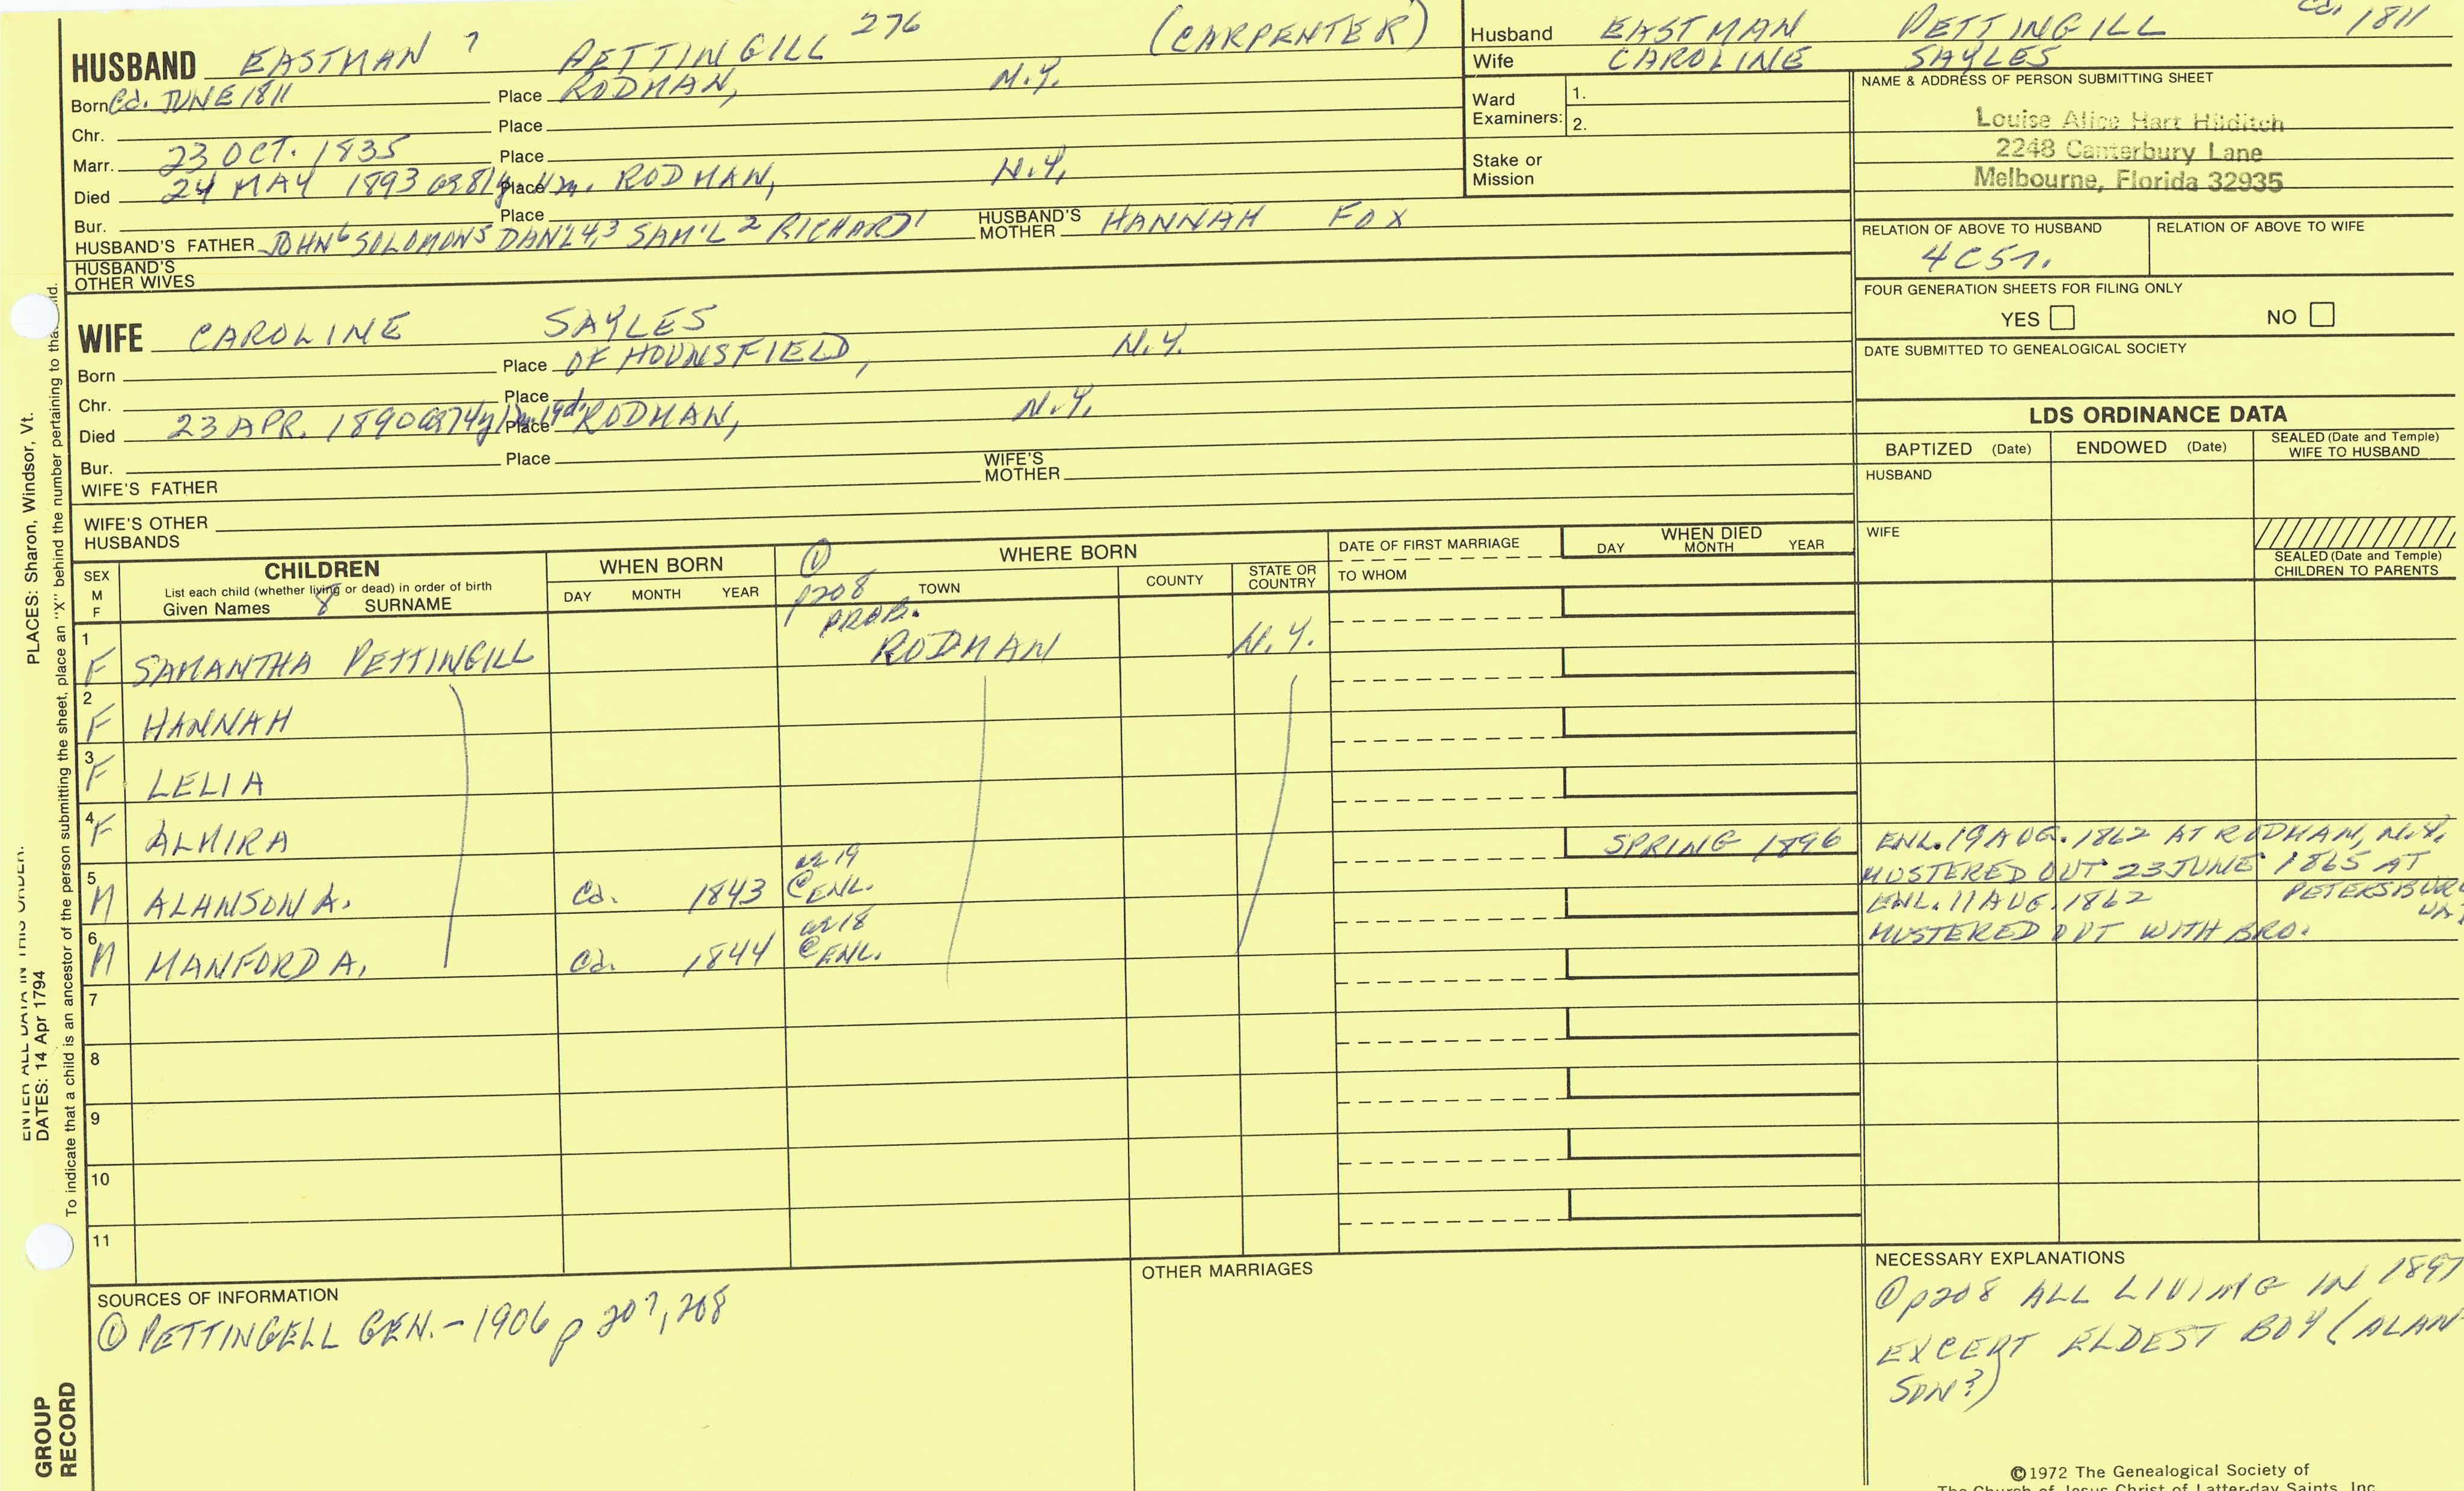 HUSBAND EASTMAN 7 PETTINGILL 276 (CARPENTER)
Born Cd. JUNE 1811 Place RODMAN, N.Y.
Chr. Place
Marr. 23 OCT. 1835 Place
Died 24 MAY 1893 Place RODMAN, N.Y.
Bur. Place
HUSBAND'S FATHER JOHN6 SOLOMON5 DAN'L4,3 SAM'L2 RICHARD1 HUSBAND'S MOTHER HANNAH FOX
HUSBAND'S
OTHER WIVES
WIFE CAROLINE SAYLES
Born Place OF HOUNSFIELD, N.Y.
Chr. Place
Died 23 APR. 1890 Place RODMAN, N.Y.
Bur. Place
WIFE'S FATHER WIFE'S MOTHER
WIFE'S OTHER
HUSBANDS
Husband EASTMAN PETTINGILL Cd. 1811
Wife CAROLINE SAYLES
Ward
Examiners: 1.
2.
Stake or
Mission
NAME & ADDRESS OF PERSON SUBMITTING SHEET
Louise Alice Hart Hilditch
2248 Canterbury Lane
Melbourne, Florida 32935
RELATION OF ABOVE TO HUSBAND RELATION OF ABOVE TO WIFE
4C5
FOUR GENERATION SHEETS FOR FILING ONLY
YES NO
DATE SUBMITTED TO GENEALOGICAL SOCIETY
LDS ORDINANCE DATA
BAPTIZED (Date) ENDOWED (Date) SEALED (Date and Temple)
WIFE TO HUSBAND
HUSBAND
WIFE
SEALED (Date and Temple)
CHILDREN TO PARENTS
SEX
M
F
CHILDREN
List each child (whether living or dead) in order of birth
Given Names 8 SURNAME
WHEN BORN
DAY MONTH YEAR
① p208
WHERE BORN
TOWN COUNTY STATE OR
COUNTRY
DATE OF FIRST MARRIAGE
TO WHOM
WHEN DIED
DAY MONTH YEAR
PROB.
1 F SAMANTHA PETTINGILL RODMAN N.Y.
2 F HANNAH
3 F LELIA
4 F ALMIRA
5 M ALANSON A. Cd. 1843 ae 19 @ENL. SPRING 1896
ENL. 19 AUG. 1862 AT RODMAN, N.Y.
MUSTERED OUT 23 JUNE 1865 AT
PETERSBURG
6 M MANFORD A. Cd. 1844 ae 18 @ENL.
ENL. 11 AUG. 1862
MUSTERED OUT WITH BRO.
7
8
9
10
11
SOURCES OF INFORMATION
① PETTINGELL GEN. - 1906 p 207, 208
OTHER MARRIAGES
NECESSARY EXPLANATIONS
① p208 ALL LIVING IN 1897
EXCEPT ELDEST BOY (ALAN-
SON?)
©1972 The Genealogical Society of
The Church of Jesus Christ of Latter-day Saints, Inc.
PLACES: Sharon, Windsor, Vt.
ENTER ALL DATA IN THIS ORDER:
DATES: 14 Apr 1794
To indicate that a child is an ancestor of the person submitting the sheet, place an "X" behind the number pertaining to that child.
GROUP
RECORD